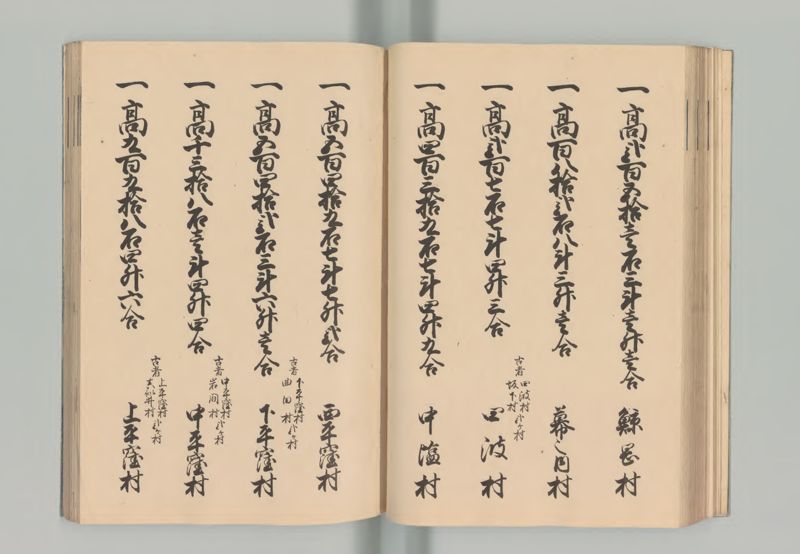 一 高弐百五拾壱石三斗壱升壱合 鯨岡村
一 高百八拾弐石八斗三升壱合 幕ノ内村
一 高弐百七石七斗四升三合
古者 四波村 坂下村 弐ヶ村
四波村
一 高四百三拾九石七斗四升九合 中塩村
一 高五百四拾九石七斗七升弐合 西平窪村
一 高五百四拾弐石三斗六升壱合
古者 下平窪村 曲田村 弐ヶ村
下平窪村
一 高千三拾八石壱斗四升四合
古者 中平窪村 岩間村 弐ヶ村
中平窪村
一 高九百九拾八石四升六合
古者 上平窪村 弐ヶ村
上平窪村